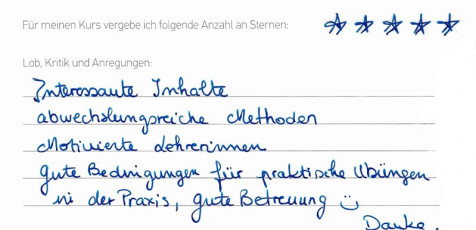 Für meinen Kurs vergebe ich folgende Anzahl an Sternen: ☆ ☆ ☆ ☆ ☆
Lob, Kritik und Anregungen:
Interessante Inhalte
abwechslungsreiche Methoden
Motivierte Lehrerinnen
gute Bedingungen für praktische Übungen
in der Praxis, gute Betreuung ☺
Danke.